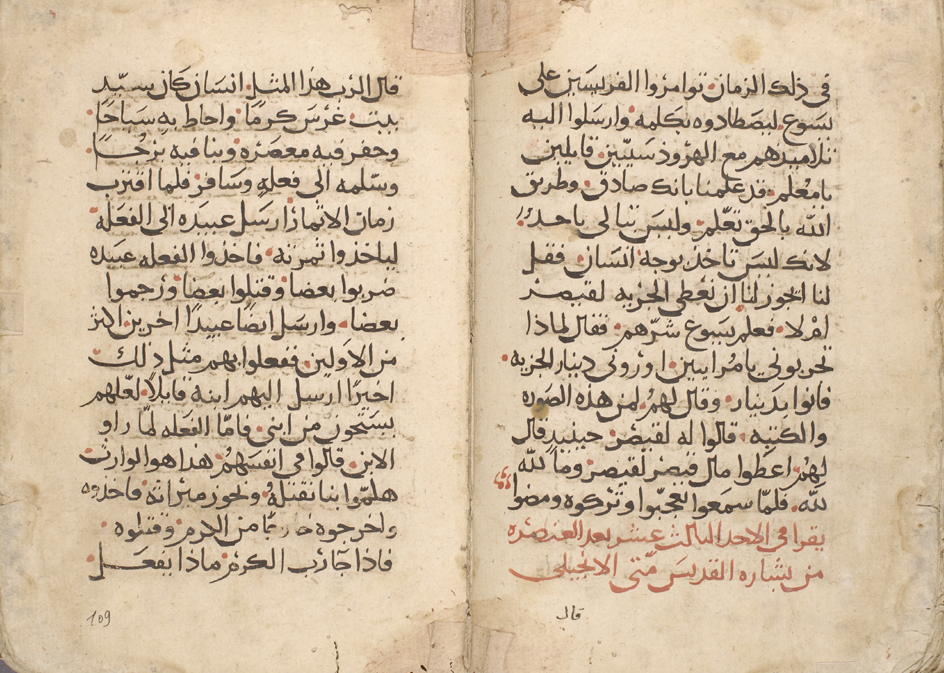 في ذلك الزمان توامروا الفريسين على
يسوع ليصطادوه بكلمه وارسلوا اليه
تلاميذهم مع الهروذسيين قايلين
يامعلم قد علمنا بانك صادق وطريق
الله بالحق تعلم وليس تبالي باحد
لانك ليس تاخذ بوجه انسان فقل
لنا ايجوز لنا ان نعطي الجزيه لقيصر
ام لا فعلم يسوع شرهم فقال لماذا
تجربوني يامرايين اروني دينار الجزيه
فاتوا بدينار وقال لهم لمن هذه الصوره
والكتبه قالوا له لقيصر حينيذ قال
لهم اعطوا مال قيصر لقيصر وما لله
لله فلمّا سمعوا تعجبوا وتركوه ومضوا
يقرا في الاحد الثالث عشر بعد العنصره
من بشاره القديس متى الانجيلي
قال
قال الرب هذا المثل انسان كان سيّد
بيت غرس كرمًا واحاط به سياجًا
وحفر فيه معصره وبنا فيه برجًا
وسلمه الى فعله وسافر فلما اقترب
زمان الاثمار ارسل عبيده الى الفعله
لياخذوا ثمرته فاخذوا الفعله عبيده
ضربوا بعضا وقتلوا بعضا ورجموا
بعضا وارسل ايضًا عبيدًا اخرين اكثر
من الاولين ففعلوا بهم مثل ذلك
اخيرًا ارسل اليهم ابنه قايلًا لعلهم
يستحون من ابني فامّا الفعله لمّا راو
الابن قالوا في انفسهم هذا هو الوارث
هلموا بنا نقتله ونحوز ميراثه فاخذوه
واخرجوه خارجًا من الكرم وقتلوه
فاذا جا رب الكرم ماذا يفعل
109